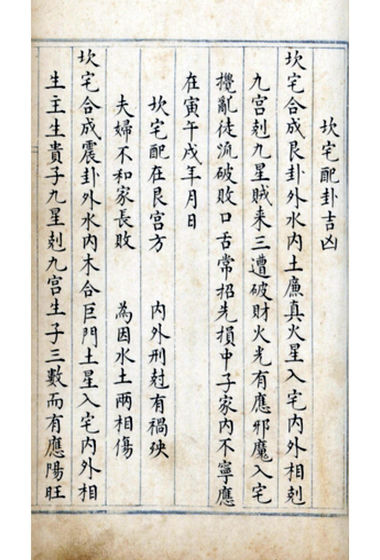 坎宅配卦吉凶
坎宅合成艮卦外水内土廉真火星入宅内外相剋
九宫剋九星賊来三遭破财火光有應邪魔入宅
攪亂徒流破敗口舌常招先損中子家内不寧應
在寅午戌年月日
坎宅配在艮宫方 内外刑尅有禍殃
夫婦不和家長敗 為因水土兩相傷
坎宅合成震卦外水内木合巨門土星入宅内外相
生主生貴子九星剋九宫生子三數而有應陽旺